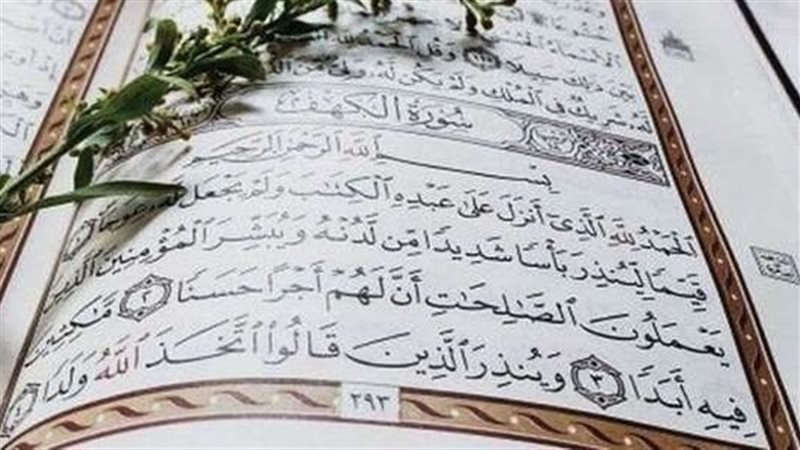 ٱلۡأَسۡمَآءُ ٱلۡحُسۡنَىٰۚ
بَيۡنَ ذَٰلِكَ سَبِيلٗا ١١٠ وَقُلِ ٱلۡحَمۡدُ لِلَّهِ
لَّهُۥ شَرِيكٞ فِي ٱلۡمُلۡكِ وَلَمۡ يَكُن لَّهُۥ وَلِيّٞ مِّنَ
سُورَةُ الكَهۡفِ
بِسۡمِ ٱللَّهِ ٱلرَّحۡمَٰنِ ٱلرَّحِيمِ
ٱلۡحَمۡدُ لِلَّهِ ٱلَّذِيٓ أَنزَلَ عَلَىٰ عَبۡدِهِ ٱلۡكِتَٰبَ وَلَمۡ يَجۡعَل لَّهُۥ عِوَجَاۜ ١
قَيِّمٗا لِّيُنذِرَ بَأۡسٗا شَدِيدٗا مِّن لَّدُنۡهُ وَيُبَشِّرَ ٱلۡمُؤۡمِنِينَ ٱلَّذِينَ
يَعۡمَلُونَ ٱلصَّٰلِحَٰتِ أَنَّ لَهُمۡ أَجۡرًا حَسَنٗا ٢ مَّٰكِثِينَ
فِيهِ أَبَدٗا ٣ وَيُنذِرَ ٱلَّذِينَ قَالُواْ ٱتَّخَذَ ٱللَّهُ وَلَدٗا ٤
٢٩٣